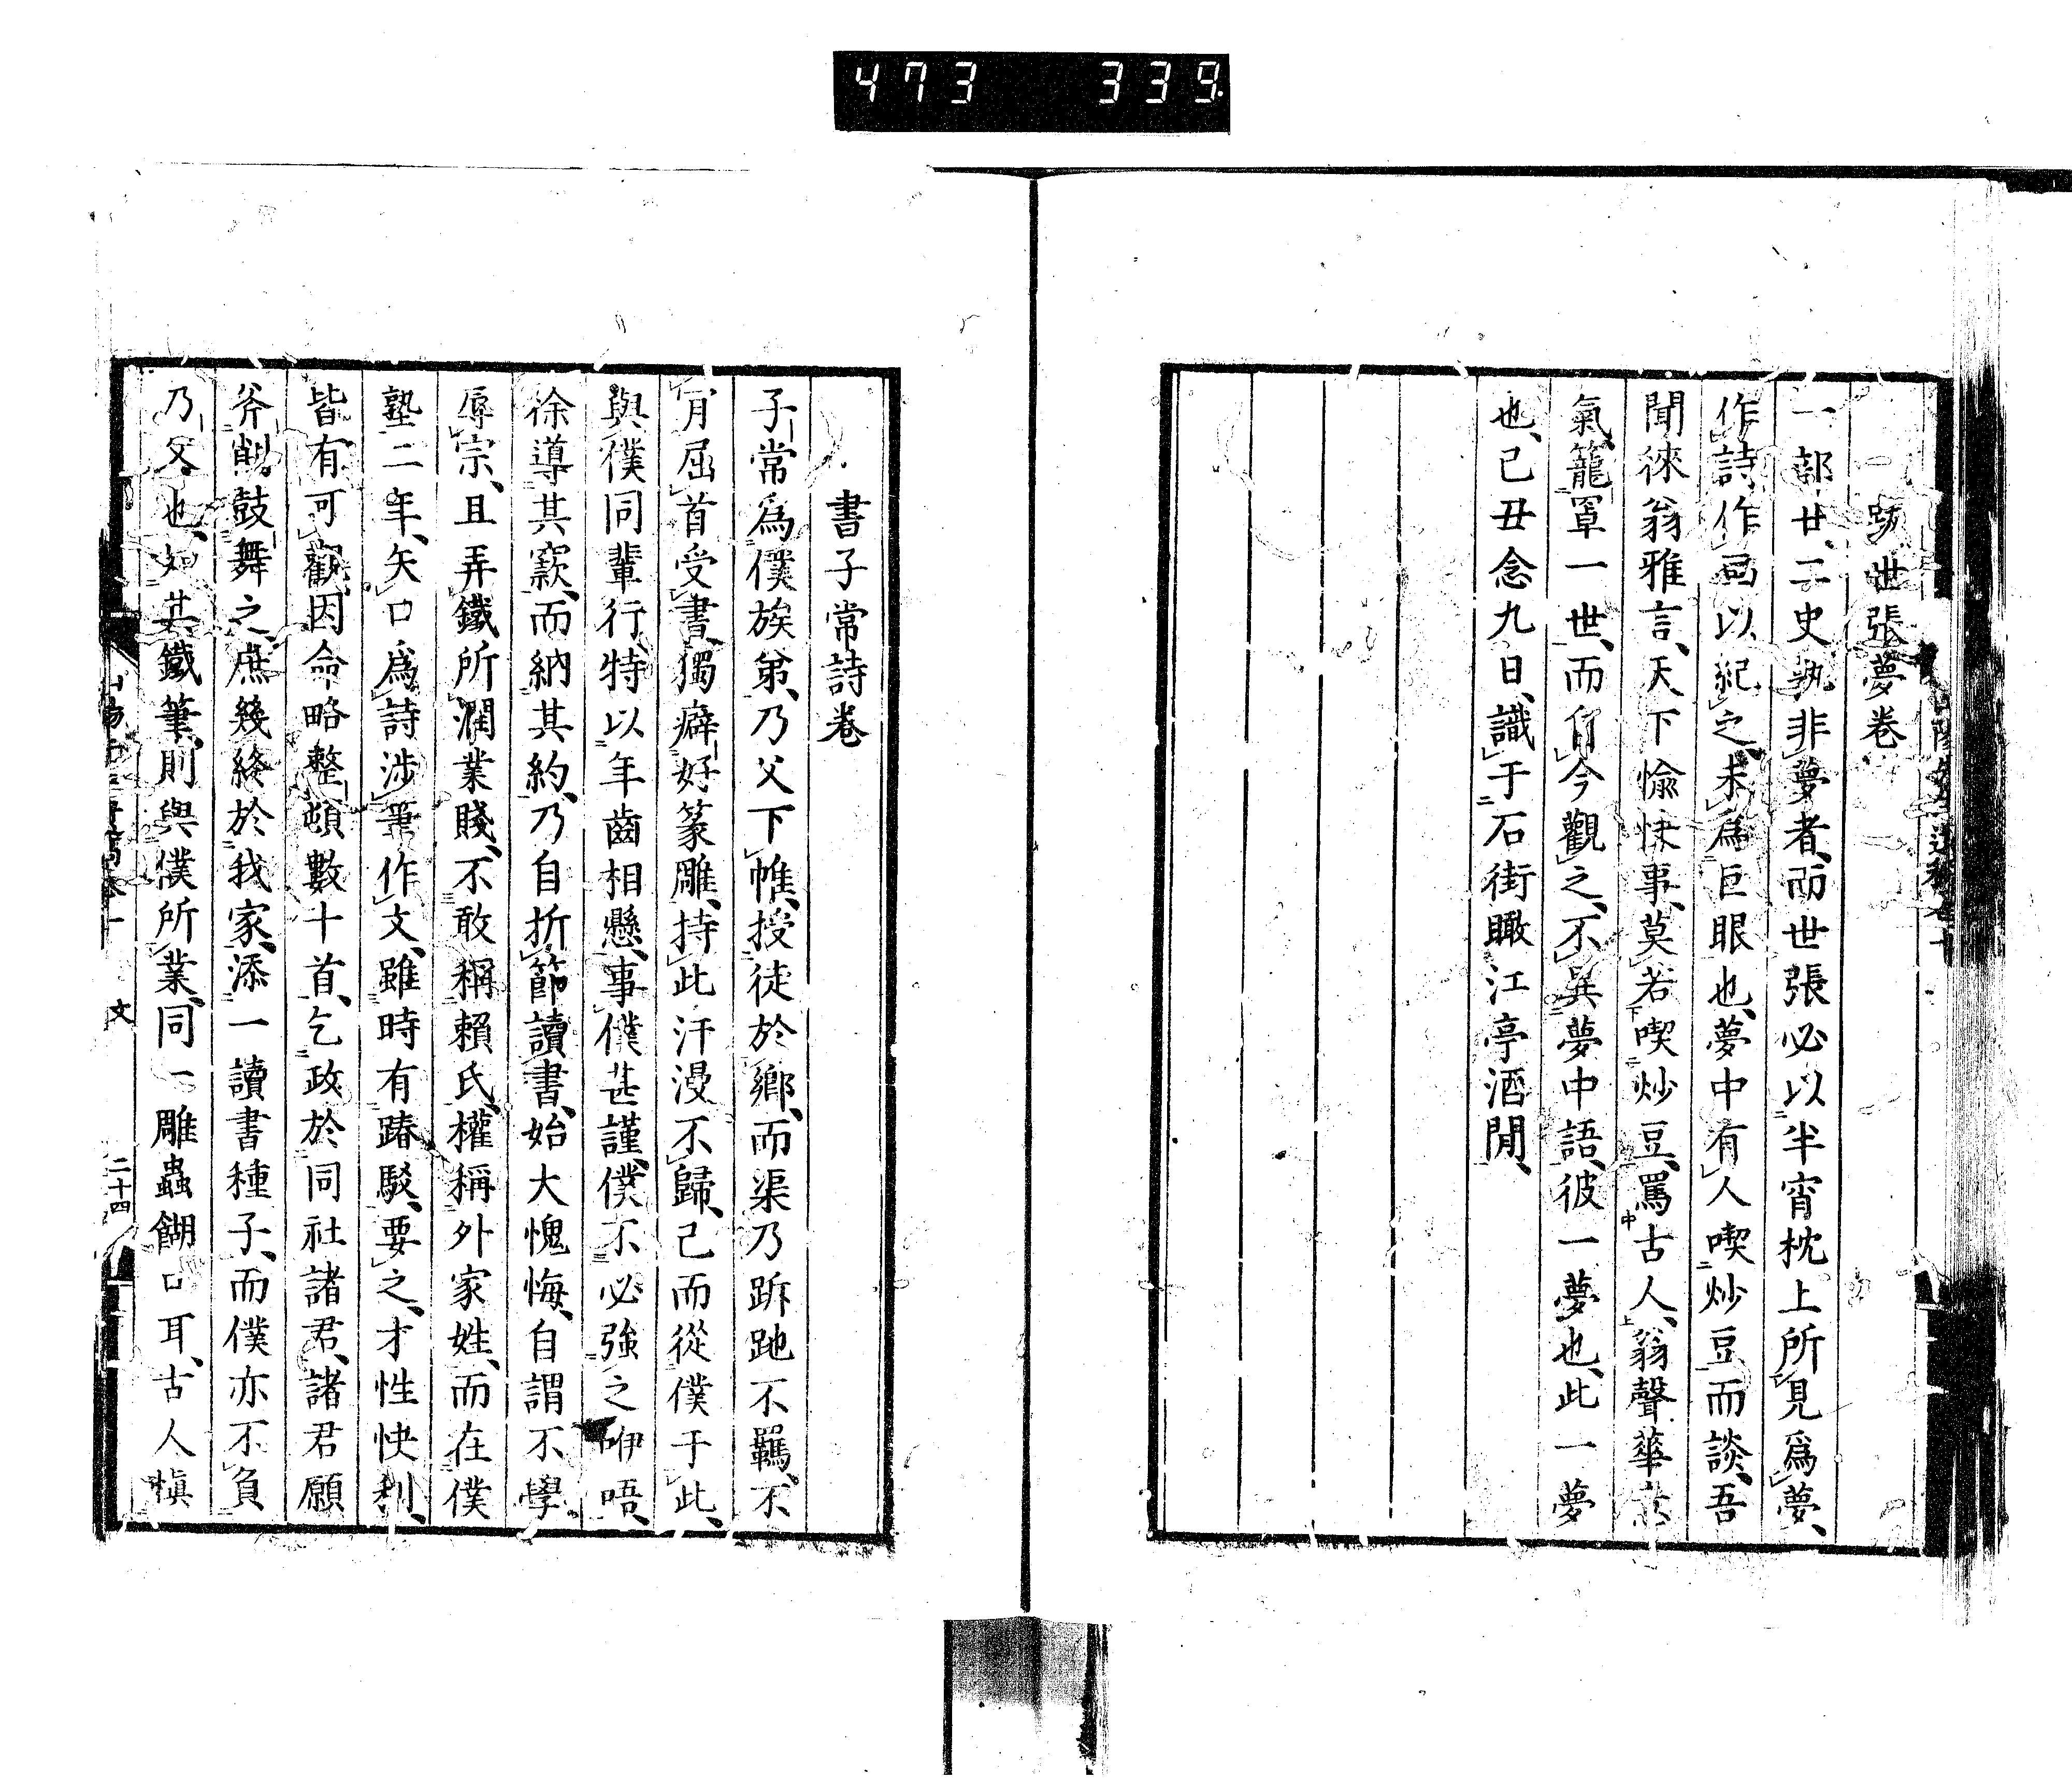 473 339
跋世張夢卷
一部廿二史孰非夢者而世張必以半宵枕上所見爲夢
作詩作画以紀之未爲巨眼也夢中有人喫炒豆而談吾
聞徠翁雅言天下愉快事莫若喫炒豆罵古人翁聲華
氣籠罩一世而自今觀之不異夢中語彼一夢也此一夢
也己丑念九日識于石街瞰江亭酒間
書子常詩卷
子常爲僕族弟乃父下帷授徒於鄉而渠乃跅跑不羈不
肯屈首受書獨癖好篆雕持此汗漫不歸已而從僕于此
與僕同輩行特以年齒相懸事僕甚謹僕不必強之咿唔
徐導其窾而納其約乃自折節讀書始大愧悔自謂不學
辱宗且弄鐵所潤業賤不敢稱賴氏權稱外家姓而在僕
塾二年矢口爲詩涉筆作文雖時有踳駁要之才性快利
皆有可觀因命略整頓數十首乞政於同社諸君諸君願
斧削鼓舞之庶幾終於我家添一讀書種子而僕亦不負
乃父也如其鐵筆則與僕所業同一雕蟲餬口耳古人慎
文
二十四